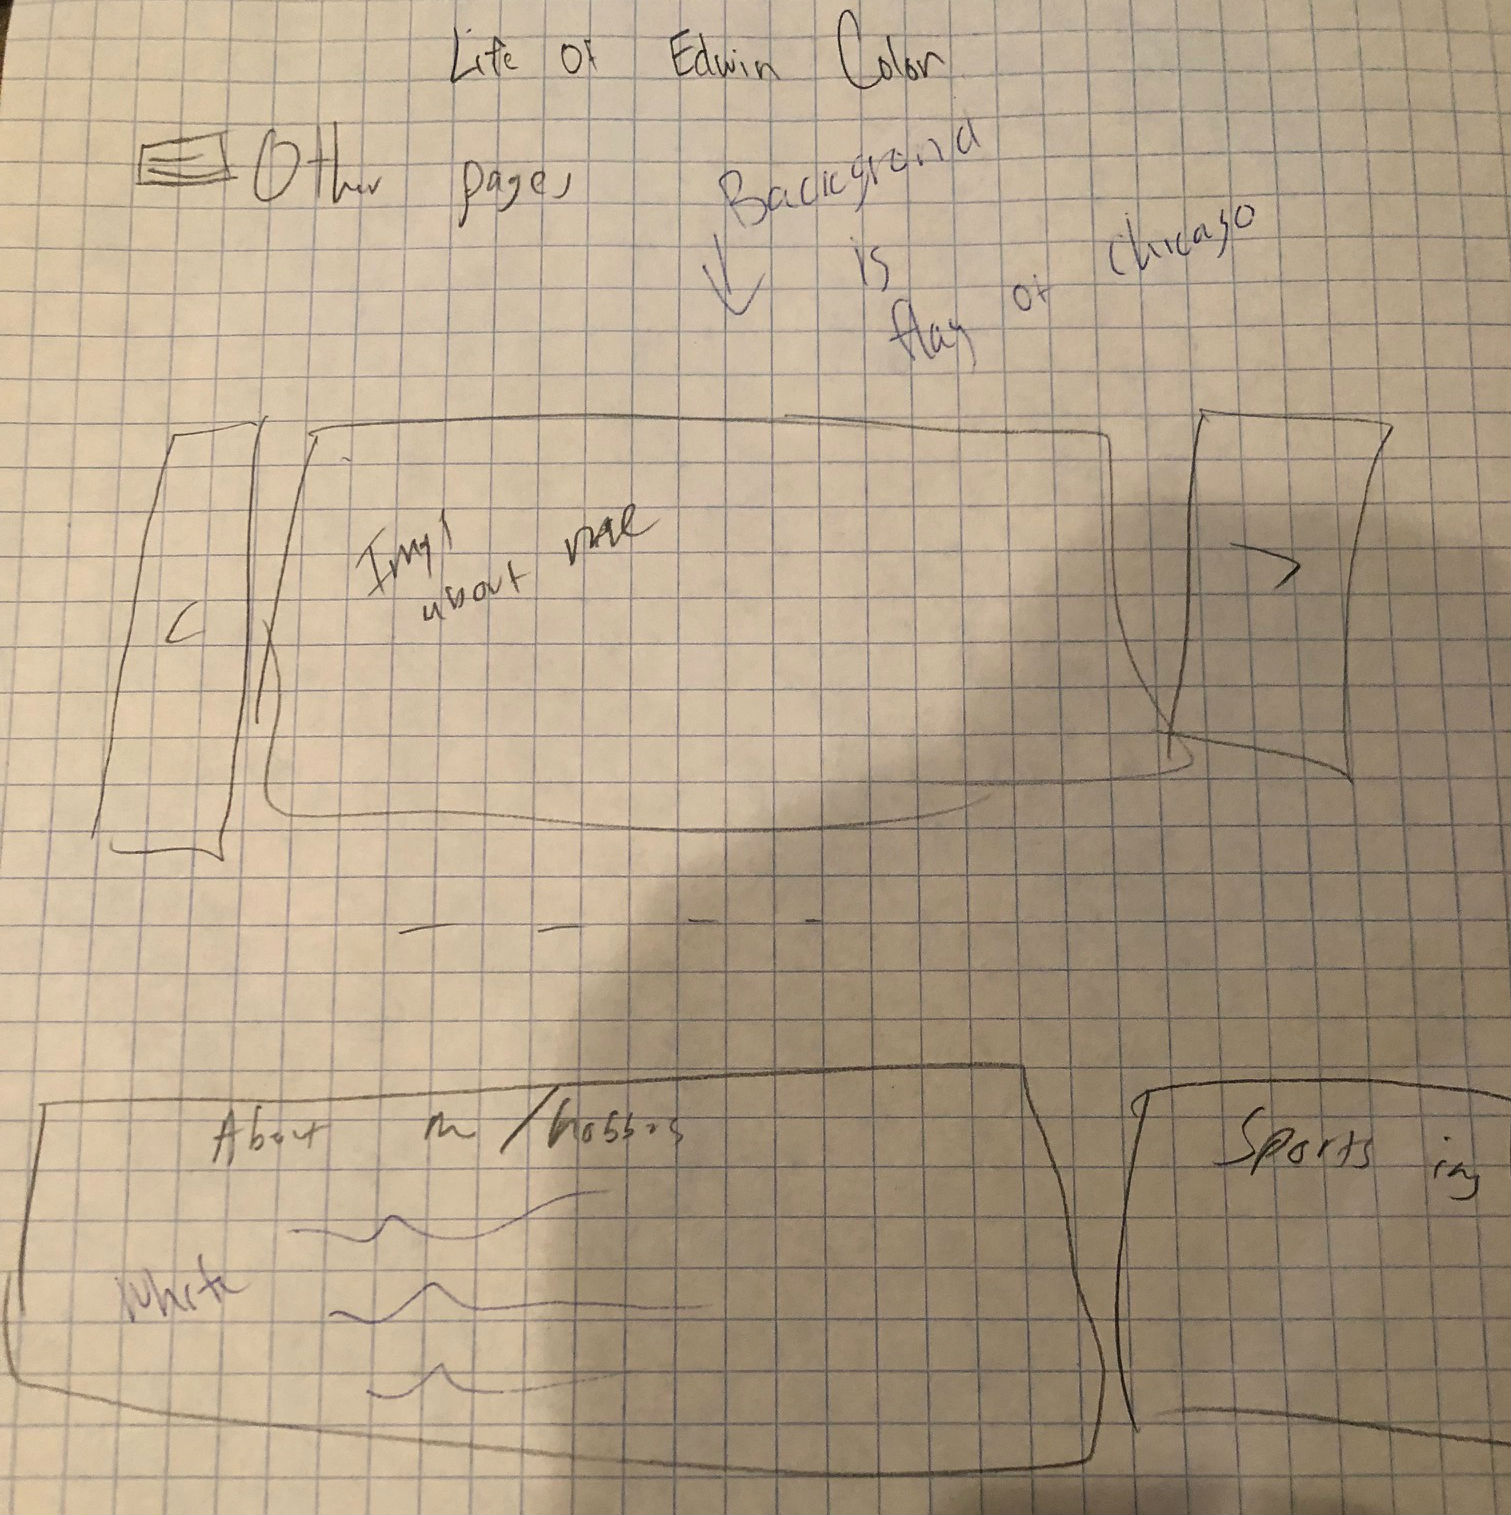 Life of Edwin Colon
Other pages
Background
is
flag of chicago
<
>
about me
About m /hobbys
Sports
White